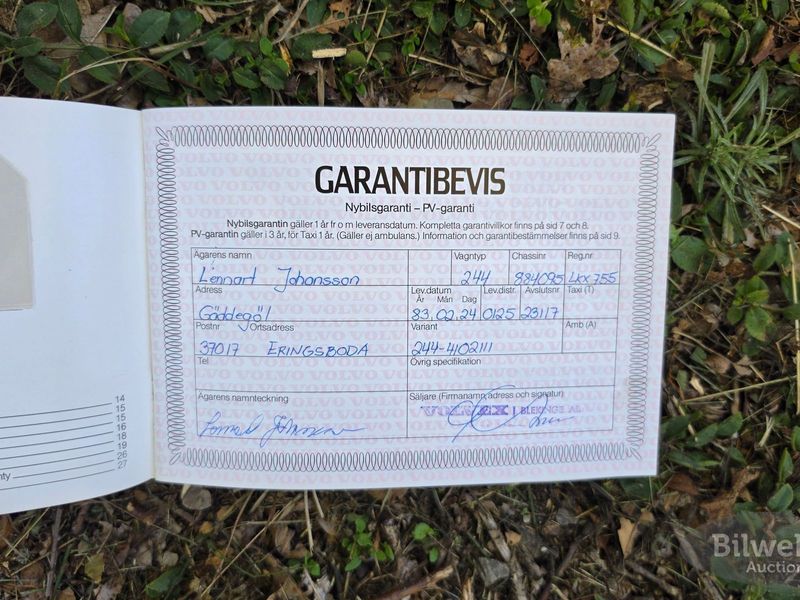 GARANTIBEVIS
Nybilsgaranti – PV-garanti
Nybilsgarantin gäller 1 år fr o m leveransdatum. Kompletta garantivillkor finns på sid 7 och 8.
PV-garantin gäller i 3 år, för Taxi 1 år. (Gäller ej ambulans.) Information och garantibestämmelser finns på sid 9.
Ägarens namn Vagntyp Chassinr Reg.nr
Lennart Johansson 244 884095 LKX 755
Adress Lev.datum Lev.distr. Avslutsnr Taxi (T)
År Mån Dag
Gäddegöl 83.02.24 0125 23117
Postnr Ortsadress Variant Amb (A)
37017 ERINGSBODA 244-4102111
Tel Övrig specifikation
Ägarens namnteckning Säljare (Firmanamn, adress och signatur)
BLEKINGE AB
14
15
15
16
18
19
26
27
nty
Auction